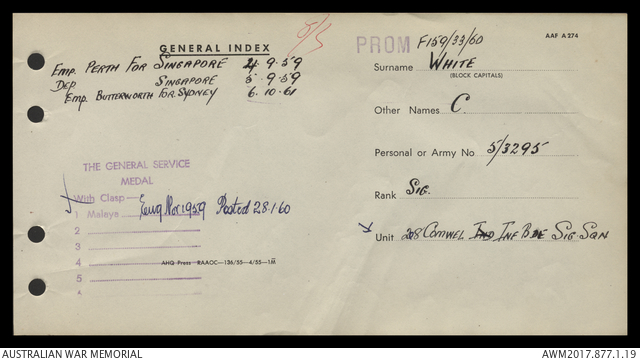 5/3
GENERAL INDEX
Emp. PERTH FOR SINGAPORE 4.9.59
DEP SINGAPORE 5.9.59
Emp. BUTTERWORTH FOR SYDNEY 6.10.61
THE GENERAL SERVICE
MEDAL
With Clasp—
1 Malaya Posted 28.1.60
2
3
4
5
AHQ Press RAAOC—136/55—4/55—1M
PROM F159/33/60
AAF A 274
Surname WHITE
(BLOCK CAPITALS)
Other Names C.
Personal or Army No 5/3295
Rank SIG.
Unit 28 COMWEL IND INF BDE SIG. SQN
AUSTRALIAN WAR MEMORIAL
AWM2017.877.1.19